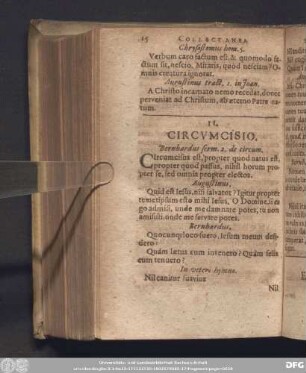 25 COLLECTANEA
Chrysostomus hom. 5.
Verbum caro factum est, & quomodo fa-
ctum sit, nescio. Miraris, quod nesciam? O-
mnis creatura ignorat.
Augustinus tract. 2. in Joan.
A Christo incarnato nemo recedat, donec
perveniat ad Christum, ab æterno Patre na-
tum.
II.
CIRCVMCISIO.
Bernhardus serm. 2. de circum.
Circumcisus est, propter quod natus est,
propter quod passus, nihil horum pro-
pter se, sed omnia propter electos.
Augustinus.
Quid est Iesus, nisi salvator? Igitur propter
temetipsum esto mihi Iesus. O Domine, si e-
go admisi, unde me damnare potes, tu non
amisisti, unde me servare potes.
Bernhardus.
Quocunque loco fuero, Iesum meum desi-
dero.
Quàm lætus cum invenero? Quàm felix
cum tenuero?
In veteri hymno.
Nil canitur suavius
Nil
DFG